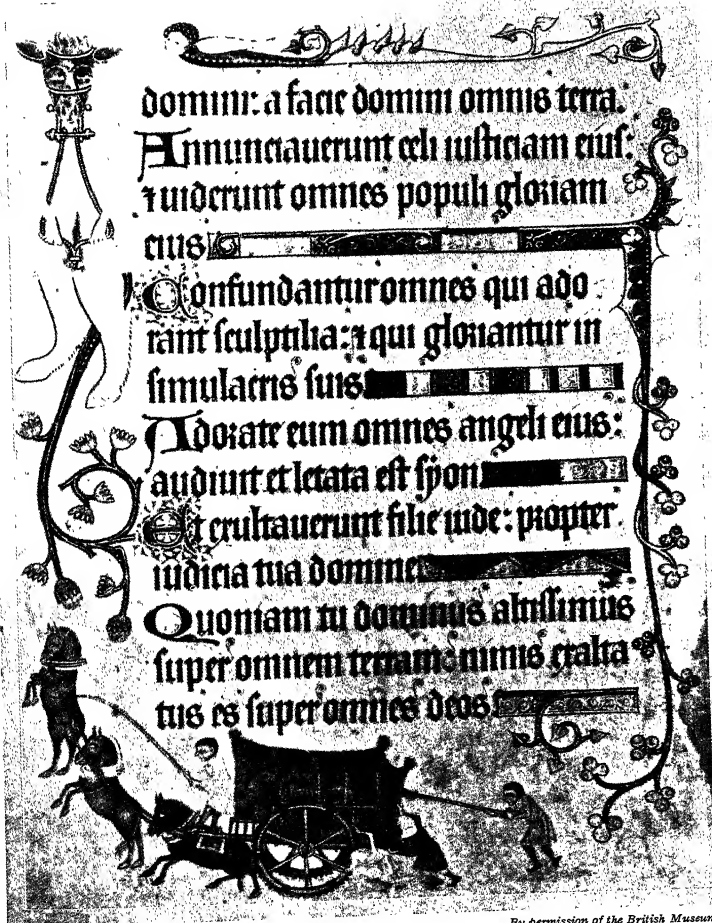 domini: a facie domini omnis terra.
Annunciauerunt celi iusticiam eius:
⁊ uiderunt omnes populi gloriam
eius
Confundantur omnes qui ado
rant sculptilia: ⁊ qui gloriantur in
simulacris suis.
Adorate eum omnes angeli eius:
audiuit et letata est syon.
Et exultauerunt filie iude: propter
iudicia tua domine.
Quoniam tu dominus altissimus
super omnem terram: nimis exalta
tus es super omnes deos.
By permission of the British Museum